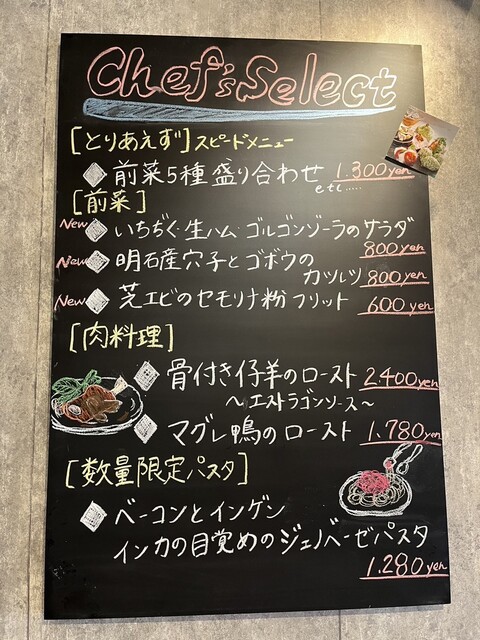 Chef's Select
[とりあえず]スピードメニュー
前菜5種盛り合わせ 1.300yen
etc.....
[前菜]
New いちぢく・生ハム ゴルゴンゾーラのサラダ
800yen
New 明石産穴子とゴボウの
カツレツ 800yen
New 芝エビのセモリナ粉フリット 600yen
[肉料理]
骨付き仔羊のロースト 2.400yen
～エストラゴンソース～
マグレ鴨のロースト 1.780yen
[数量限定パスタ]
ベーコンとインゲン
インカの目覚めのジェノベーゼパスタ
1.280yen